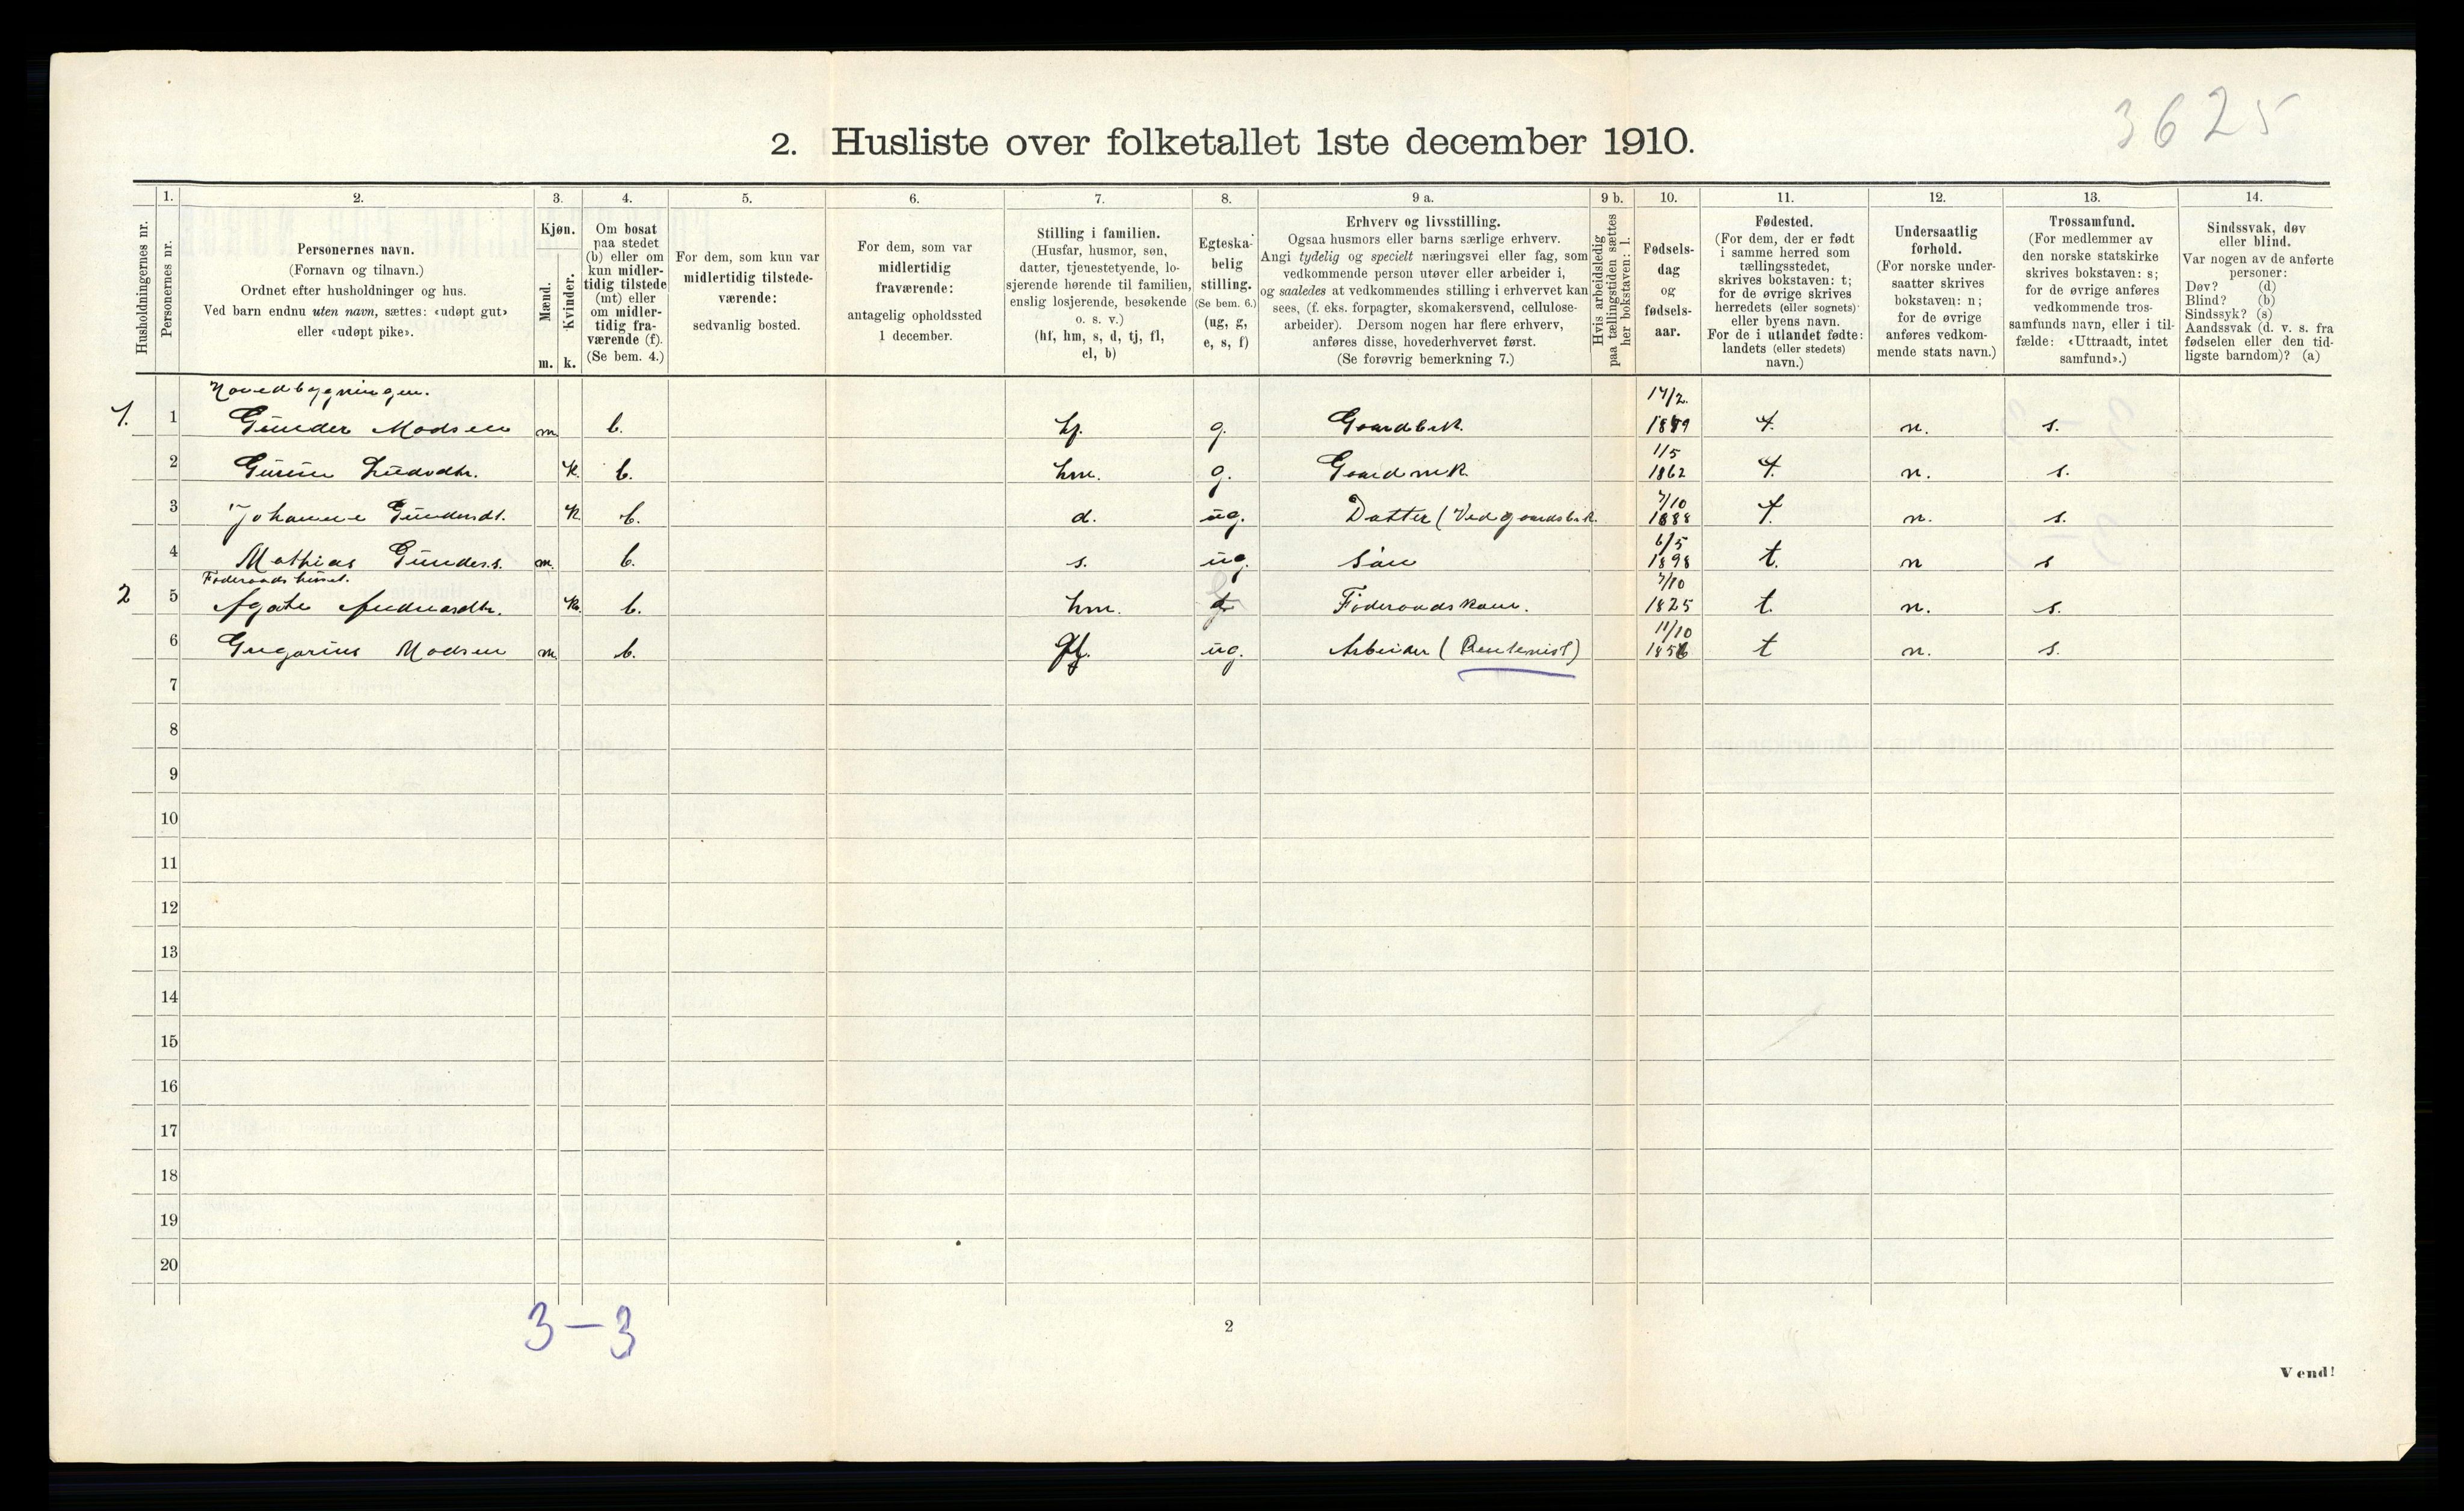 3625
2. Husliste over folketallet 1ste december 1910.
Husholdningernes nr.
1. Personernes nr.
2. Personernes navn. (Fornavn og tilnavn.) Ordnet efter husholdninger og hus. Ved barn endnu uten navn, sættes: «udøpt gut» eller «udøpt pike».
3. Kjøn. Mænd. m. Kvinder. k.
4. Om bosat paa stedet (b) eller om kun midler-tidig tilstede (mt) eller om midler-tidig fra-værende (f). (Se bem. 4.)
5. For dem, som kun var midlertidig tilstede-værende: sedvanlig bosted.
6. For dem, som var midlertidig fraværende: antagelig opholdssted 1 december.
7. Stilling i familien. (Husfar, husmor, søn, datter, tjenestetyende, lo-sjerende hørende til familien, enslig losjerende, besøkende o. s. v.) (hf, hm, s, d, tj, fl, el, b)
8. Egteska-belig stilling. (Se bem. 6.) (ug, g, e, s, f)
9 a. Erhverv og livsstilling. Ogsaa husmors eller barns særlige erhverv. Angi tydelig og specielt næringsvei eller fag, som vedkommende person utøver eller arbeider i, og saaledes at vedkommendes stilling i erhvervet kan sees, (f. eks. forpagter, skomakersvend, cellulose-arbeider). Dersom nogen har flere erhverv, anføres disse, hovederhvervet først. (Se forøvrig bemerkning 7.)
9 b. Hvis arbeidsledig paa tællingstiden sættes her bokstaven: l.
10. Fødsels-dag og fødsels-aar.
11. Fødested. (For dem, der er født i samme herred som tællingsstedet, skrives bokstaven: t; for de øvrige skrives herredets (eller sognets) eller byens navn. For de i utlandet fødte: landets (eller stedets) navn.)
12. Undersaatlig forhold. (For norske under-saatter skrives bokstaven: n; for de øvrige anføres vedkom-mende stats navn.)
13. Trossamfund. (For medlemmer av den norske statskirke skrives bokstaven: s; for de øvrige anføres vedkommende tros-samfunds navn, eller i til-fælde: «Uttraadt, intet samfund».)
14. Sindssvak, døv eller blind. Var nogen av de anførte personer: Døv? (d) Blind? (b) Sindssyk? (s) Aandssvak (d. v. s. fra fødselen eller den tid-ligste barndom)? (a)
Hovedbygningen.
1. 1 Gunder Madsen m. b. hf. g. Gaardbrk. 17/2. t. n. s.
2 k. b. hm. g. 1/5 1862 t. n. s.
3 Johanne Gundersdt. k. b. d. ug. Datter (Ved gaardsbrk. 7/10 1888 t. n. s.
4 Mathias Gunders. m. b. s. ug. Søn 6/5 1898 t. n s
Føderaadshuset.
2 5 Agate Andreasdtr. k. b. hm. Føderaadskone. 7/10 1825 t. n. s.
6 Gregorius Madsen m b. ug. Arbeider (Rentenist) 11/10 t n. s.
7
8
9
10
11
12
13
14
15
16
17
18
19
20
3 - 3
2
Vend!